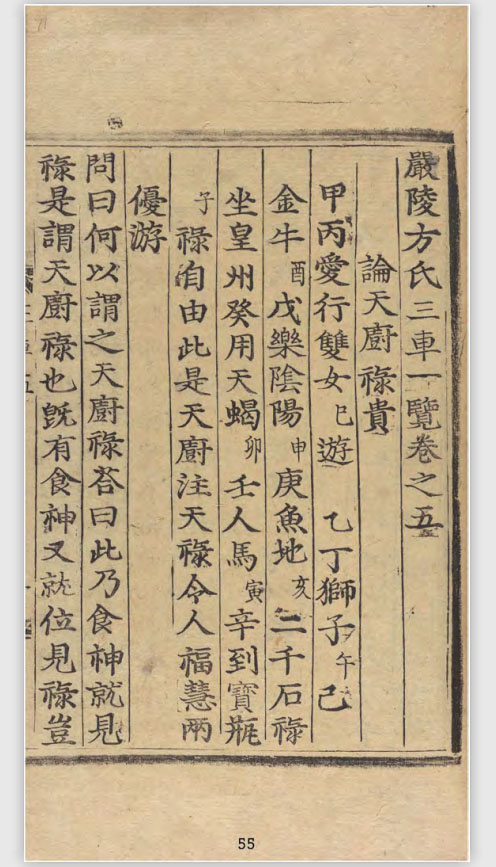 嚴陵方氏三車一覽卷之五
論天廚祿貴
甲丙愛行雙女巳遊 乙丁獅子午己
金牛酉戊樂隂陽申庚魚地亥二千石祿
坐皇州癸用天蝎卯壬人馬寅辛到寶瓶
子祿自由此是天廚注天祿令人福慧兩
優游
問曰何以謂之天廚祿荅曰此乃食神就見
祿是謂天廚祿也旣有食神又就位見祿豈
55